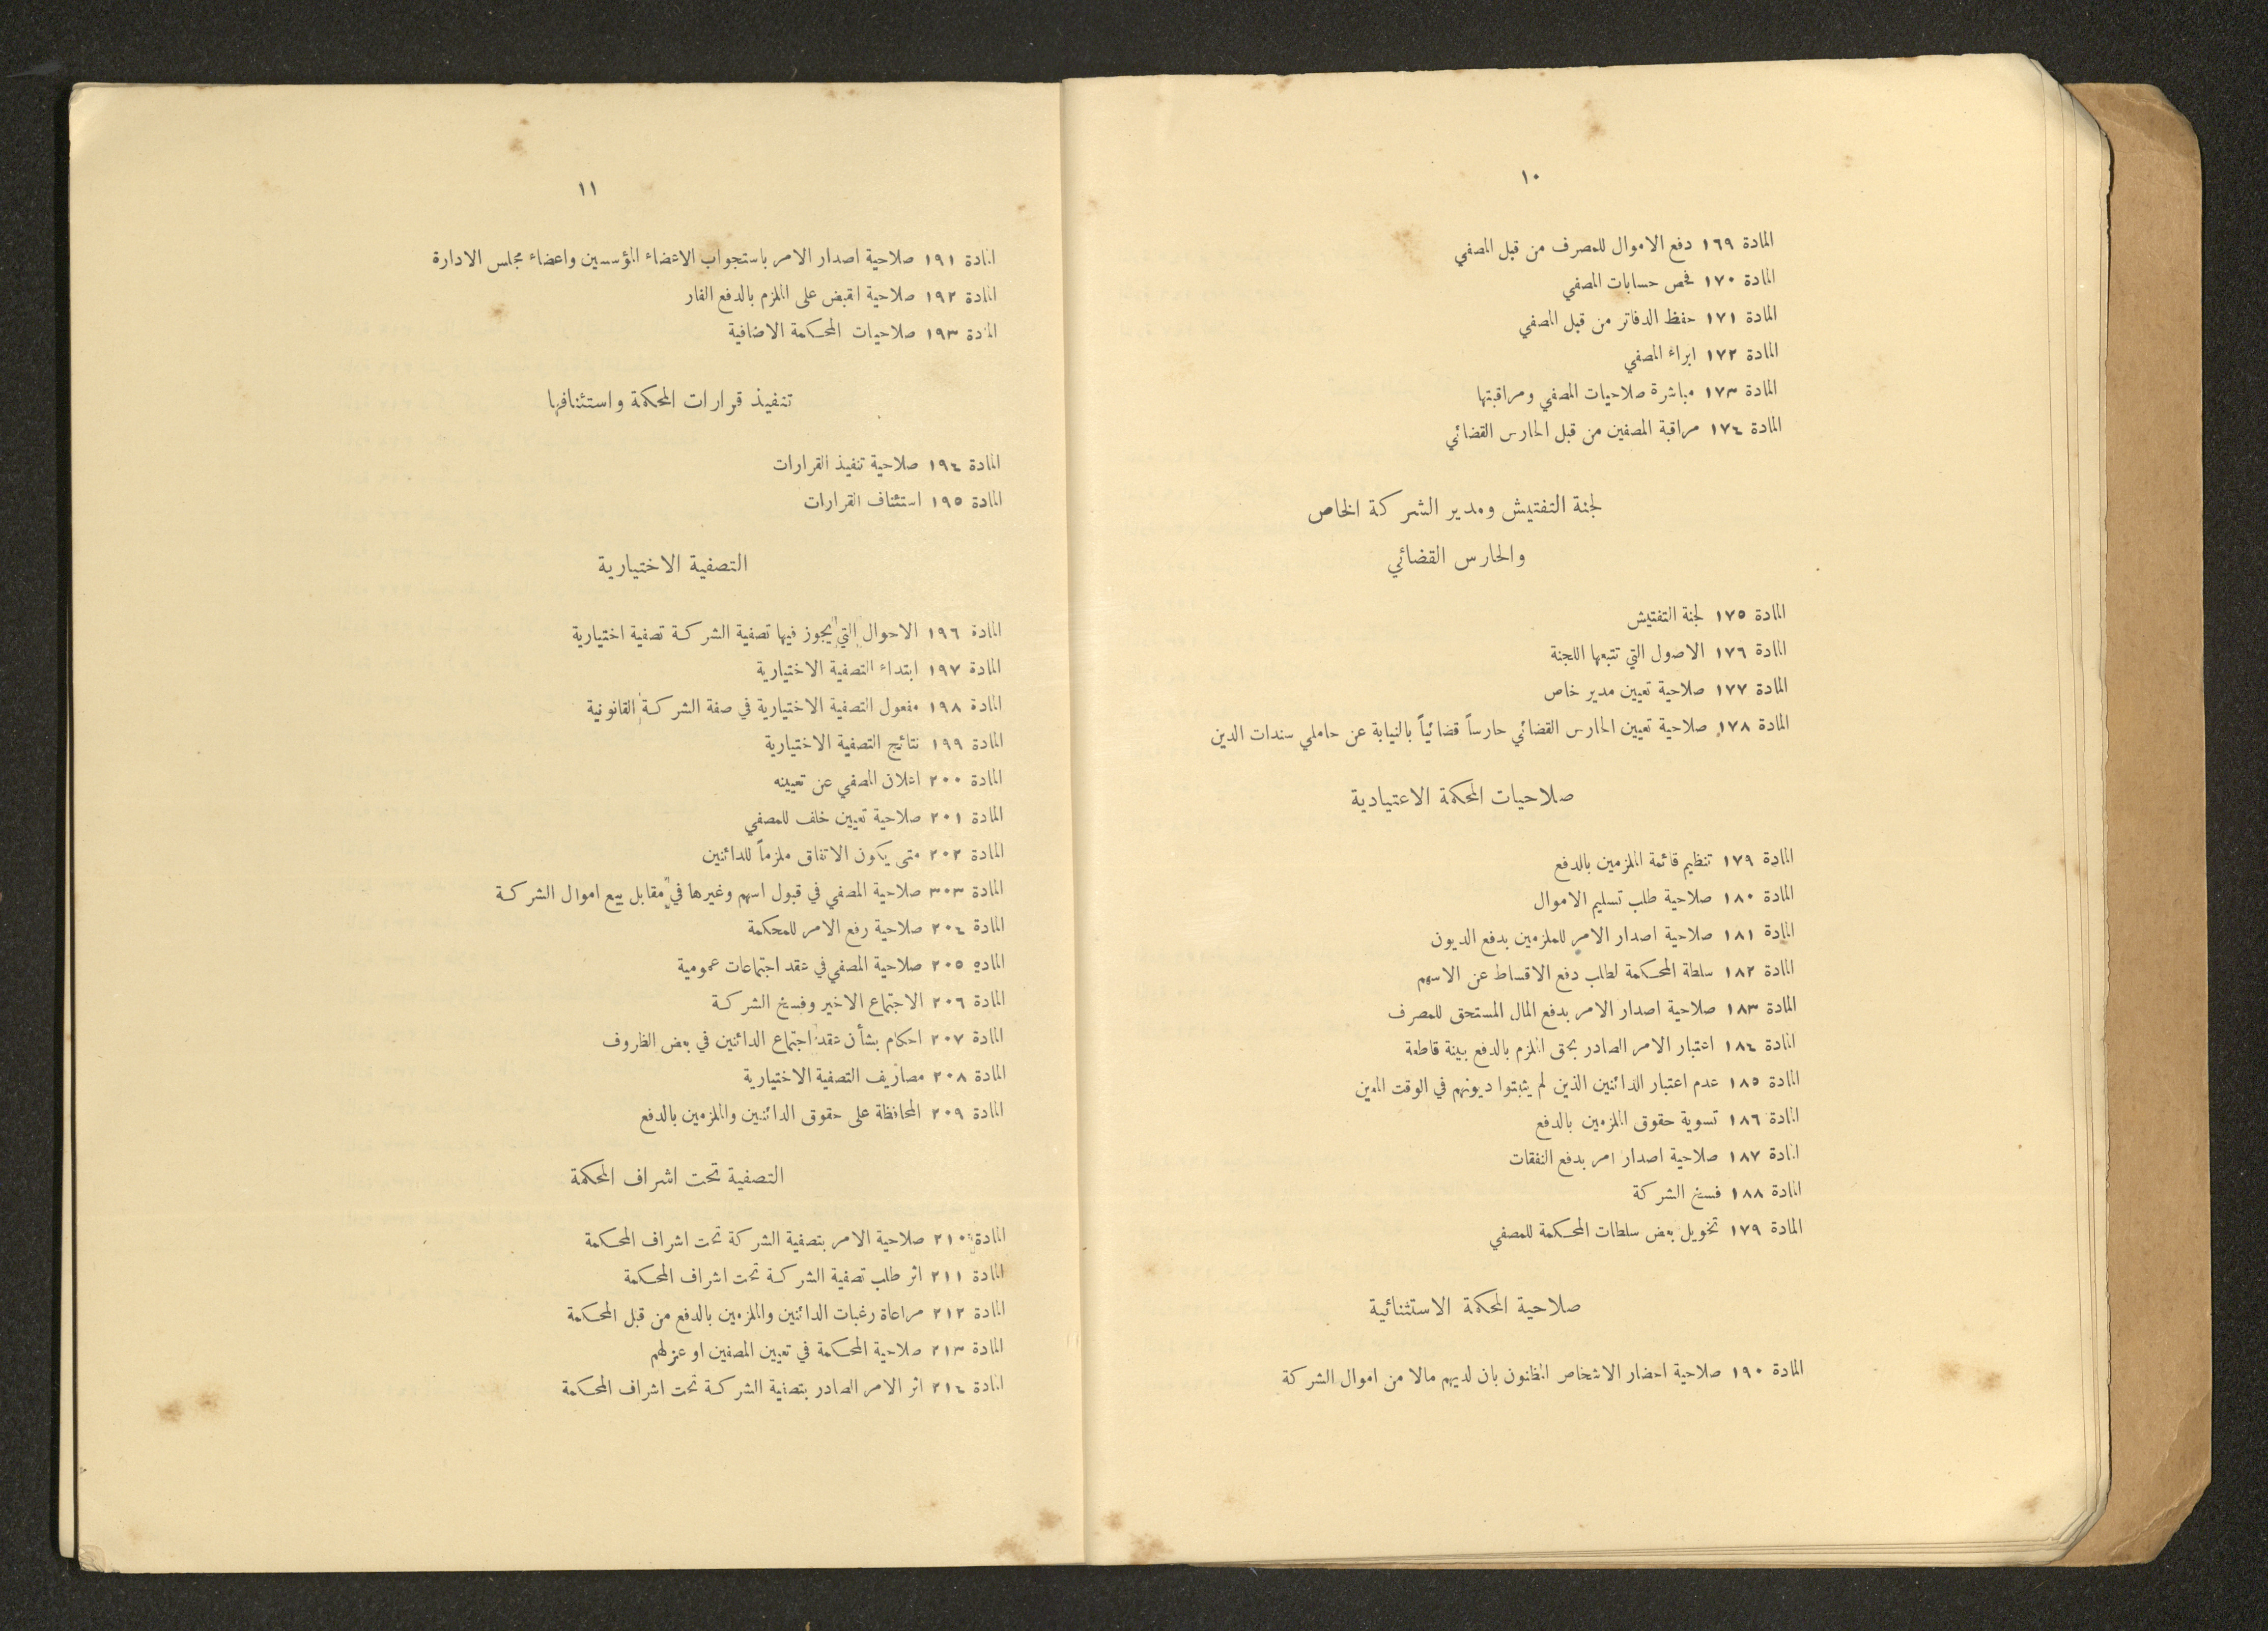 ١٠
المادة ١٦٩ دفع الاموال للمصرف من قبل المصفي
المادة ١٧٠ فحص حسابات المصفي
المادة ١٧١ حفظ الدفاتر من قبل المصفي
المادة ١٧٢ ابراء المصفي
المادة ١٧٣ مباشرة صلاحيات المصفي ومراقبتها
المادة ١٧٤ مراقبة المصفين من قبل الحارس القضائي
لجنة التفتيش ومدير الشركة الخاص
والحارس القضائي
المادة ١٧٥ لجنة التفتيش
المادة ١٧٦ الاصول التي تتبعها اللجنة
المادة ١٧٧ صلاحية تعيين مدير خاص
المادة ١٧٨ صلاحية تعيين الحارس القضائي حارساً قضائياً بالنيابة عن حاملي سندات الدين
صلاحيات المحكمة الاعتيادية
المادة ١٧٩ تنظيم قائمة الملزمين بالدفع
المادة ١٨٠ صلاحية طلب تسليم الاموال
المادة ١٨١ صلاحية اصدار الامر للملزمين بدفع الديون
المادة ١٨٢ سلطة المحكمة لطلب دفع الاقساط عن الاسهم
المادة ١٨٣ صلاحية اصدار الامر بدفع المال المستحق للمصرف
المادة ١٨٤ اعتبار الامر الصادر بحق الملزم بالدفع بينة قاطعة
المادة ١٨٥ عدم اعتبار الدائنين الذين لم يثبتوا ديونهم في الوقت المعين
المادة ١٨٦ تسوية حقوق الملزمين بالدفع
المادة ١٨٧ صلاحية اصدار امر بدفع النفقات
المادة ١٨٨ فسخ الشركة
المادة ١٧٩ تخويل بعض سلطات المحكمة للمصفي
صلاحية المحكمة الاستثنائية
المادة ١٩٠ صلاحية احضار الاشخاص المظنون بان لديهم مالا من اموال الشركة
١١
المادة ١٩١ صلاحية اصدار الامر باستجواب الاعضاء المؤسسين واعضاء مجلس الادارة
المادة ١٩٢ صلاحية القبض على الملزم بالدفع الفار
المادة ١٩٣ صلاحيات المحكمة الاضافية
تنفيذ قرارات المحكمة واستئنافها
المادة ١٩٤ صلاحية تنفيذ القرارات
المادة ١٩٥ استئناف القرارات
التصفية الاختيارية
المادة ١٩٦ الاحوال التي يجوز فيها تصفية الشركة تصفية اختيارية
المادة ١٩٧ ابتداء التصفية الاختيارية
المادة ١٩٨ مفعول التصفية الاختيارية في صفة الشركة القانونية
المادة ١٩٩ نتائج التصفية الاختيارية
المادة ٢٠٠ اعلان المصفي عن تعيينه
المادة ٢٠١ صلاحية تعيين خلف للمصفي
المادة ٢٠٢ متى يكون الاتفاق ملزماً للدائنين
المادة ٣٠٣ صلاحية المصفي في قبول اسهم وغيرها في مقابل بيع اموال الشركة
المادة ٢٠٤ صلاحية رفع الامر للمحكمة
الماده ٢٠٥ صلاحية المصفي في عقد اجتماعات عمومية
المادة ٢٠٦ الاجتماع الاخير وفسخ الشركة
المادة ٢٠٧ احكام بشأن عقد اجتماع الدائنين في بعض الظروف
المادة ٢٠٨ مصاريف التصفية الاختيارية
المادة ٢٠٩ المحافظة على حقوق الدائنين والملزمين بالدفع
التصفية تحت اشراف المحكمة
المادة ٢١٠ صلاحية الامر بتصفية الشركة تحت اشراف المحكمة
المادة ٢١١ اثر طلب تصفية الشركة تحت اشراف المحكمة
المادة ٢١٢ مراعاة رغبات الدائنين والملزمين بالدفع من قبل المحكمة
المادة ٢١٣ صلاحية المحكمة في تعيين المصفين او عزلهم
المادة ٢١٤ اثر الامر الصادر بتصفية الشركة تحت اشراف المحكمة